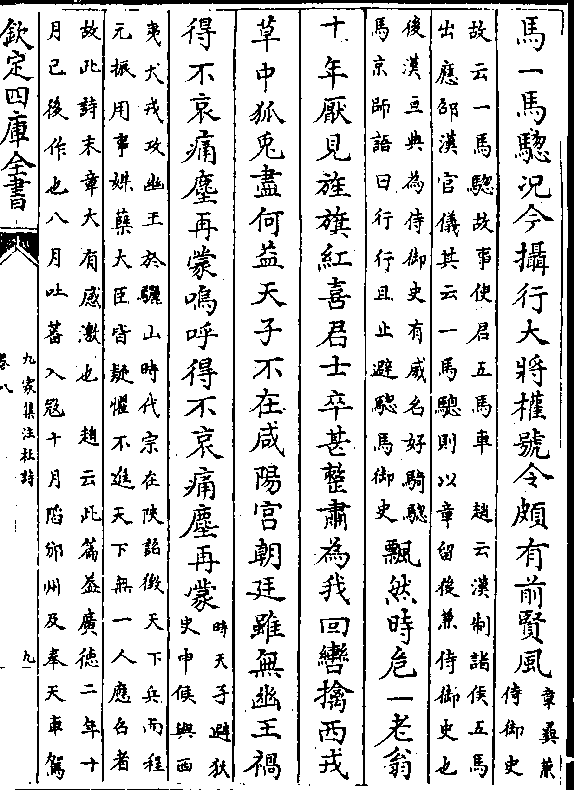 馬一馬驄况今攝行大將權號令頗有前賢風
章彛兼
侍御史
故云一馬驄故事使君五馬車　趙云漢制諸侯五馬
出應邵漢官儀其云一馬驄則以章留後兼侍御史也
後漢亘典為侍御史有威名好騎驄
馬京師語曰行行且止避驄馬御史
飄然時危一老翁
十年厭見旌旗紅喜君士卒甚整肅為我回轡擒西戎
草中狐兎盡何益天子不在咸陽宫朝廷雖無幽王禍
得不哀痛塵再蒙嗚呼得不哀痛塵再蒙
時天子避狄
史申侯與西
夷犬戎攻幽王於驪山時代宗在陜詔徴天下兵而程
元振用事媒蘖大臣皆疑懼不進天下無一人應召者
故此詩末章大有感激也　趙云此篇葢廣徳二年十
月已後作也八月吐蕃入冦十月陷邠州及奉天車駕
欽定四庫全書
九家集注杜詩
卷八
九